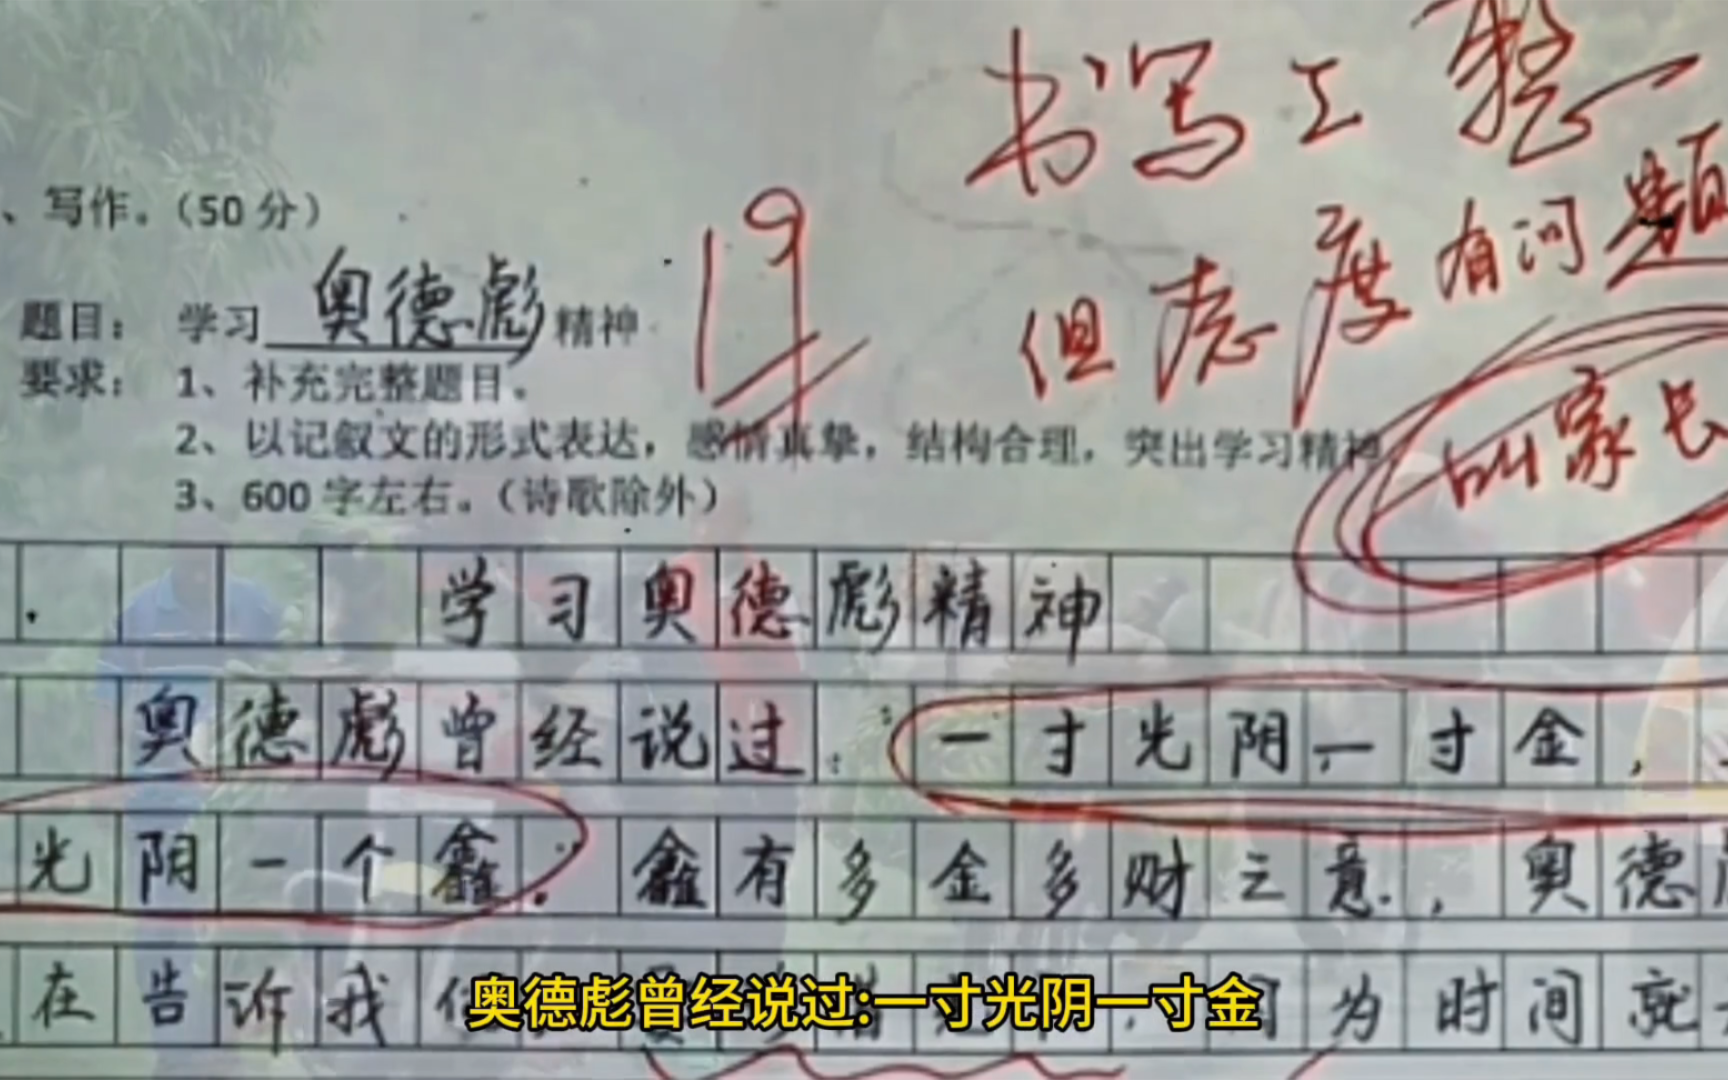 书写工整
但态度有问题
叫家长
19
、写作。（50分）
题目： 学习 奥德彪 精神
要求： 1、补充完整题目。
2、以记叙文的形式表达，感情真挚，结构合理，突出学习精神
3、600字左右。（诗歌除外）
学习奥德彪精神
奥德彪曾经说过：一寸光阴一寸金，
光阴一个鑫。鑫有多金多财之意，奥德
在告诉我 为时间就
奥德彪曾经说过:一寸光阴一寸金